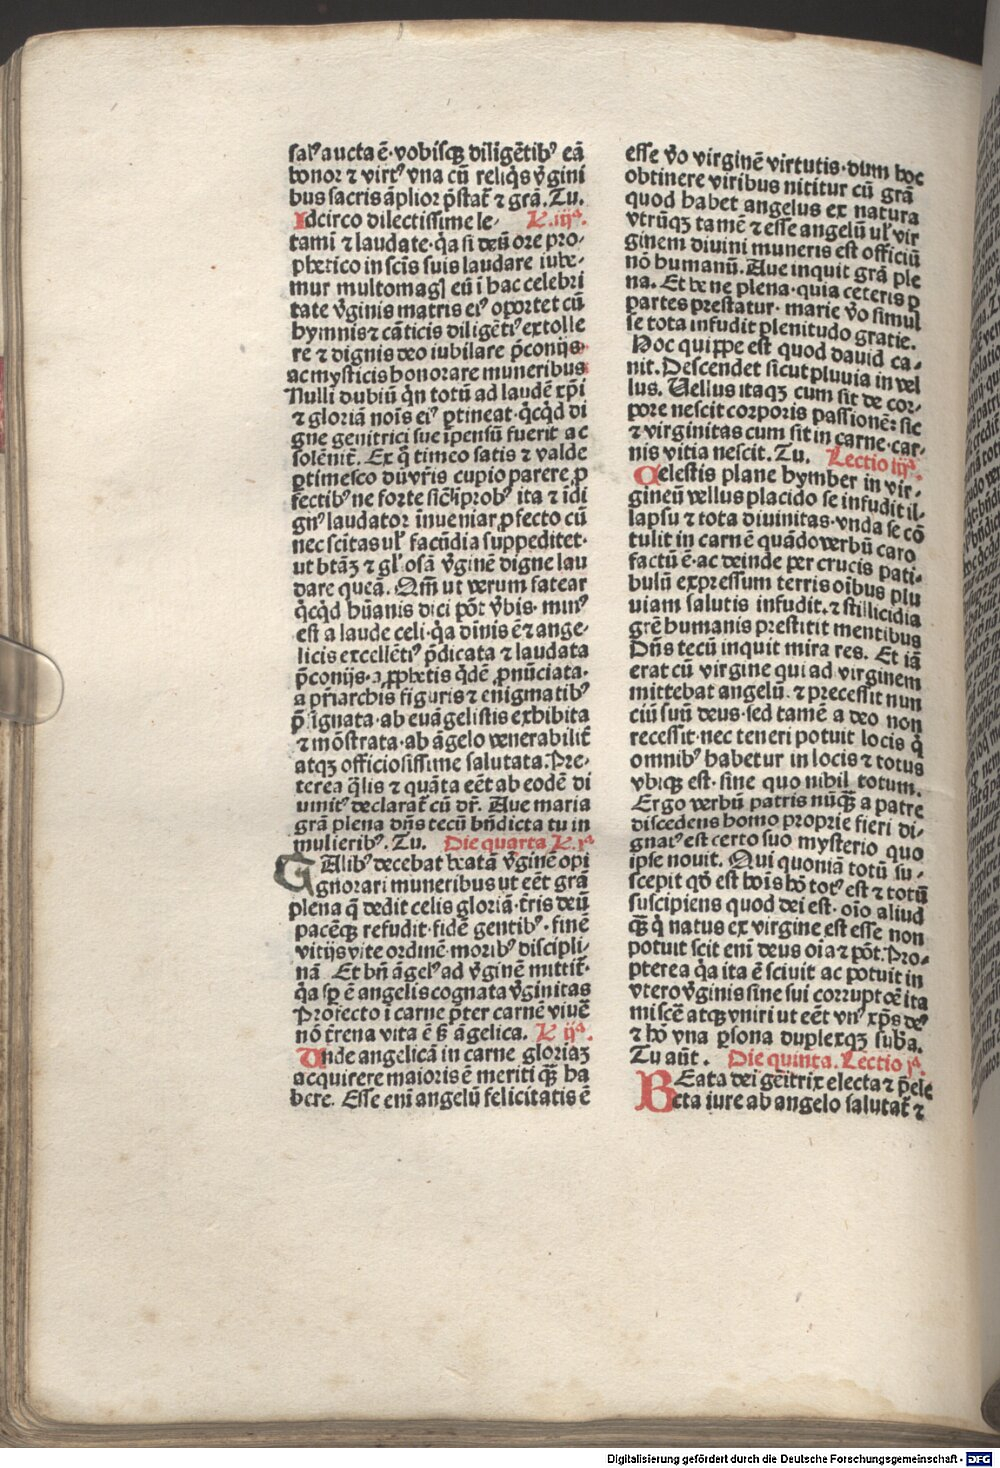 salꝰ aucta ē·vobisqꝫ diligētibꝰ eā
honor ⁊ virtꝰ vna cū reliq̄s v̄gini
bus sacris āplior p̄stat᷑ ⁊ grā. Tu.
Idcirco dilectissime le⸗ L. iijᵃ.
tami ⁊ laudate·q̄a si deū ore pro⸗
phetico in scīs suis laudare iube⸗
mur multomagꝭ eū ī hac celebri
tate v̄ginis matris eiꝰ oportet cū
hymnis ⁊ cāticis diligētiꝰ extolle
re ⁊ dignis deo iubilare p̄conijs
ac mysticis honorare muneribus
Nulli dubiū q̄n totū ad laudē xp̄i
⁊ gloriā noīs eiꝰ ꝑtineat·q̄cq̄d di
gne genitrici sue īpensū fuerit ac
solēnit᷑. Ex q̄ timeo satis ⁊ valde
ꝑtimesco dū vr̄is cupio parere ꝓ
fectibꝰ ne forte sic̄ īprobꝰ ita ⁊ īdi
gnꝰ laudator īnueniar ꝓfecto cū
nec scītas ul̓ facūdia suppeditet·
ut btāꝫ ⁊ gl̓osā v̄ginē digne lau
dare queā. Qm̄ ut verum fatear
q̄cq̄d hūanis dici pōt v̄bis·minꝰ
est a laude celi·q̄a dīnis ē ⁊ ange⸗
licis excellētiꝰ p̄dicata ⁊ laudata
p̄conijs·a ꝓphetis q̄dē ꝓnūciata·
a pr̄iarchis figuris ⁊ enigmatibꝰ
p̄ īgnata·ab euāgelistis exhibita
⁊ mōstrata·ab āgelo venerabilit᷑
atqꝫ officiosissime salutata. Pre⸗
terea q̄lis ⁊ quāta eēt ab eodē di
uinitꝰ declarat᷑ cū dr̄. Aue maria
grā plena dn̄s tecū bn̄dicta tu in
mulieribꝰ. Tu. Die quarta L. jᵃ
TAlibꝰ decebat beatā v̄ginē opi
gnorari muneribus ut eēt grā
plena q̄ dedit celis gloriā·t̄ris deū
pacēqꝫ refudit·fidē gentibꝰ·finē
vitijs vite ordinē·moribꝰ discipli⸗
nā. Et bn̄ āgelꝰ ad v̄ginē mittit᷑·
q̄a sꝑ ē angelis cognata v̄ginitas
Profecto ī carne p̄ter carnē viuē
nō t̄rena vita ē sꝫ āgelica. L ijᵃ.
Unde angelicā in carne gloriaꝫ
acquirere maioris ē meriti qꝫ̄ ha
bere. Esse enī angelū felicitatis ē
esse v̄o virginē virtutis·dum hoc
obtinere viribus nititur cū grā
quod habet angelus ex natura
vtrūqꝫ tamē ⁊ esse angelū ul̓ vir
ginem diuini muneris est officiū
nō humanū. Aue inquit grā ple
na. Et bene plena·quia ceteris ꝑ
partes prestatur·marie v̄o simul
se tota infudit plenitudo gratie.
Hoc quippe est quod dauid ca⸗
nit. Descendet sicut pluuia in vel
lus. Uellus itaqꝫ cum sit de cor⸗
pore nescit corporis passionē: sic
⁊ virginitas cum sit in carne·car⸗
nis vitia nescit. Tu. Lectio iijᵃ.
Celestis plane hymber in vir⸗
gineū vellus placido se infudit il⸗
lapsu ⁊ tota diuinitas·vnda se cō
tulit in carnē quādo verbū caro
factū ē·ac deinde per crucis pati⸗
bulū expressum terris oībus plu
uiam salutis infudit·⁊ stillicidia
grē humanis prestitit mentibus
Dn̄s tecū inquit mira res. Et iā
erat cū virgine qui ad virginem
mittebat angelū·⁊ precessit nun
ciū suū deus·sed tamē a deo non
recessit·nec teneri potuit locis q̄
omnibꝰ habetur in locis ⁊ totus
vbiqꝫ est·sine quo nihil totum.
Ergo verbū patris nūqꝫ̄ a patre
discedens homo proprie fieri di⸗
gnatꝰ est certo suo mysterio quo
ipse nouit. Qui quoniā totū su⸗
scepit qd̓ est hoīs hō totꝰ est ⁊ totū
suscipiens quod dei est·oīo aliud
qꝫ̄ q̄ natus ex virgine est esse non
potuit scit enī deus oīa ⁊ pōt. Pro⸗
pterea q̄a ita ē sciuit ac potuit in
vtero v̄ginis sine sui corruptōe ita
miscē atqꝫ vniri ut eēt vnꝰ xp̄s deꝰ
⁊ hō vna ꝑsona duplexqꝫ suba.
Tu aūt. Die quinta. Lectio jᵃ.
BEata dei gēitrix electa ⁊ p̄ele
cta iure ab angelo salutat᷑ ⁊
Digitalisierung gefördert durch die Deutsche Forschungsgemeinschaft - DFG